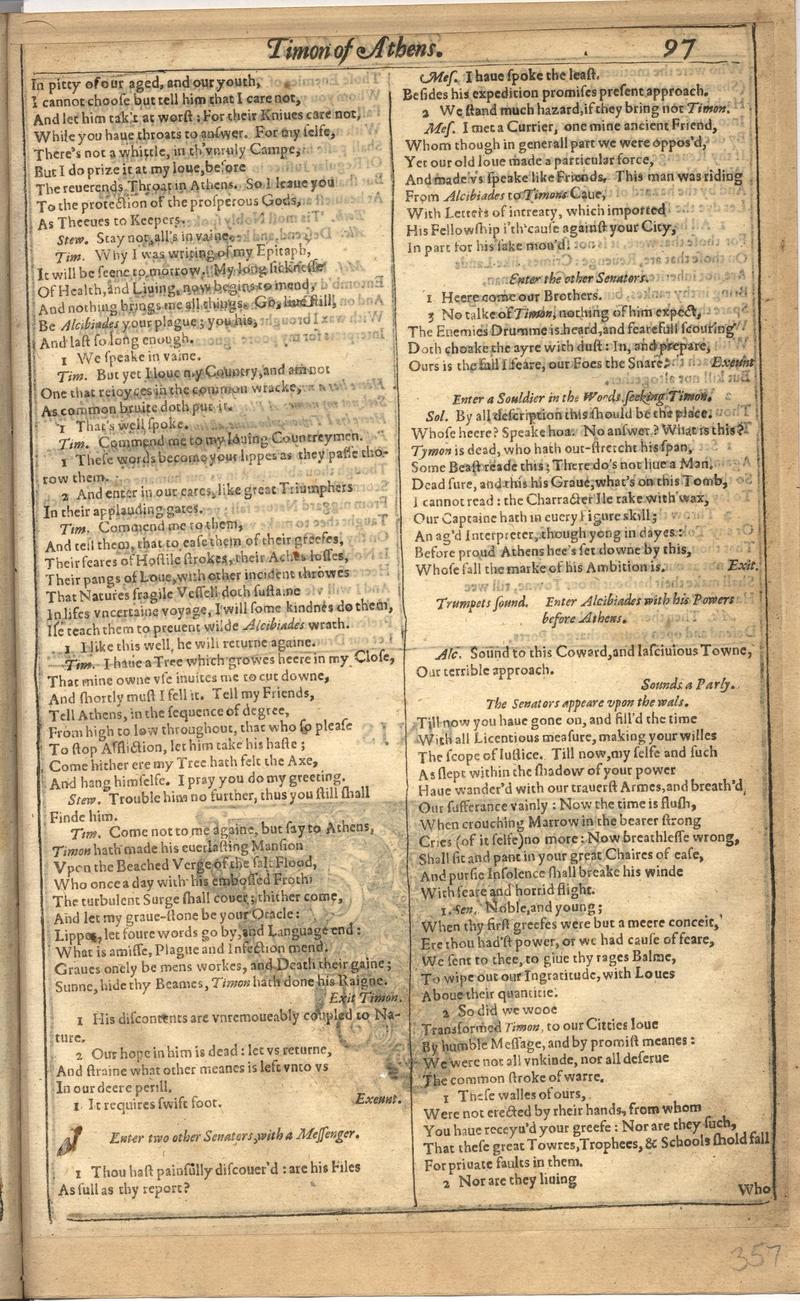 Timon of Athens.
97
In pitty of our aged, and our youth,
I cannot choose but tell him that I care not,
And let him tak't at worst: For their Kniues care not,
While you haue throats to answer. For my selfe,
There's not a whittle, in th'vnruly Campe,
But I do prize it at my loue, before
The reuerends Throat in Athens. So I leaue you
To the protection of the prosperous Gods,
As Theeues to Keepers.
Stew. Stay not, all's in vaine.
Tim. Why I was writing of my Epitaph,
It will be seene to morrow. My long sicknesse
Of Health, and Liuing, now begins to mend,
And nothing brings me all things. Go, liue still,
Be Alcibiades your plague; you his,
And last so long enough.
1 We speake in vaine.
Tim. But yet I loue my Country, and am not
One that reioyces in the common wracke,
As common bruite doth put it.
1 That's well spoke.
Tim. Commend me to my louing Countreymen.
1 These words become your lippes as they passe tho-
row them.
2 And enter in our eares, like great Triumphers
In their applauding gates.
Tim. Commend me to them,
And tell them, that to ease them of their greefes,
Their feares of Hostile strokes, their Aches losses,
Their pangs of Loue, with other incident throwes
That Natures fragile Vessell doth sustaine
In lifes vncertaine voyage, I will some kindnes do them,
Ile teach them to preuent wilde Alcibiades wrath.
1 I like this well, he will returne againe.
Tim. I haue a Tree which growes heere in my Close,
That mine owne vse inuites me to cut downe,
And shortly must I fell it. Tell my Friends,
Tell Athens, in the sequence of degree,
From high to low throughout, that who so please
To stop Affliction, let him take his haste;
Come hither ere my Tree hath felt the Axe,
And hang himselfe. I pray you do my greeting.
Stew. Trouble him no further, thus you still shall
Finde him.
Tim. Come not to me againe, but say to Athens,
Timon hath made his euerlasting Mansion
Vpon the Beached Verge of the salt Flood,
Who once a day with his embossed Froth
The turbulent Surge shall couer; thither come,
And let my graue-stone be your Oracle:
Lippes, let foure words go by, and Language end:
What is amisse, Plague and Infection mend.
Graues onely be mens workes, and Death their gaine;
Sunne, hide thy Beames, Timon hath done his Raigne.
Exit Timon.
1 His discontents are vnremoueably coupled to Na-
ture.
2 Our hope in him is dead: let vs returne,
And straine what other meanes is left vnto vs
In our deere perill.
1 It requires swift foot.
Exeunt.
Enter two other Senators, with a Messenger.
1 Thou hast painfully discouer'd: are his Files
As full as thy report?
Mes. I haue spoke the least.
Besides his expedition promises present approach.
2 We stand much hazard, if they bring not Timon.
Mes. I met a Currier, one mine ancient Friend,
Whom though in generall part we were oppos'd,
Yet our old loue made a particular force,
And made vs speake like Friends. This man was riding
From Alcibiades to Timons Caue,
With Letters of intreaty, which imported
His Fellowship i'th'cause against your City,
In part for his sake mou'd.
Enter the other Senators.
1 Heere come our Brothers.
3 No talke of Timon, nothing of him expect,
The Enemies Drumme is heard, and fearefull scouring
Doth choake the ayre with dust: In, and prepare,
Ours is the fall I feare, our Foes the Snare.
Exeunt
Enter a Souldier in the Woods, seeking Timon.
Sol. By all description this should be the place.
Whose heere? Speake hoa. No answer? What is this?
Tymon is dead, who hath out-stretcht his span,
Some Beast reade this; There do's not liue a Man.
Dead sure, and this his Graue, what's on this Tomb,
I cannot read: the Charracter Ile take with wax,
Our Captaine hath in euery Figure skill;
An ag'd Interpreter, though yong in dayes:
Before proud Athens hee's set downe by this,
Whose fall the marke of his Ambition is.
Exit.
Trumpets sound. Enter Alcibiades with his Powers
before Athens.
Alc. Sound to this Coward, and lasciuious Towne,
Our terrible approach.
Sounds a Parly.
The Senators appeare vpon the wals.
Till now you haue gone on, and fill'd the time
With all Licentious measure, making your willes
The scope of Iustice. Till now, my selfe and such
As slept within the shadow of your power
Haue wander'd with our trauerst Armes, and breath'd
Our sufferance vainly: Now the time is flush,
When crouching Marrow in the bearer strong
Cries (of it selfe) no more: Now breathlesse wrong,
Shall sit and pant in your great Chaires of ease,
And pursie Insolence shall breake his winde
With feare and horrid flight.
1.Sen. Noble, and young;
When thy first greefes were but a meere conceit,
Ere thou had'st power, or we had cause of feare,
We sent to thee, to giue thy rages Balme,
To wipe out our Ingratitude, with Loues
Aboue their quantitie.
2 So did we wooe
Transformed Timon, to our Citties loue
By humble Message, and by promist meanes:
We were not all vnkinde, nor all deserue
The common stroke of warre.
1 These walles of ours,
Were not erected by their hands, from whom
You haue receyu'd your greefe: Nor are they such,
That these great Towres, Trophees, & Schools shold fall
For priuate faults in them.
2 Nor are they liuing
Who
357